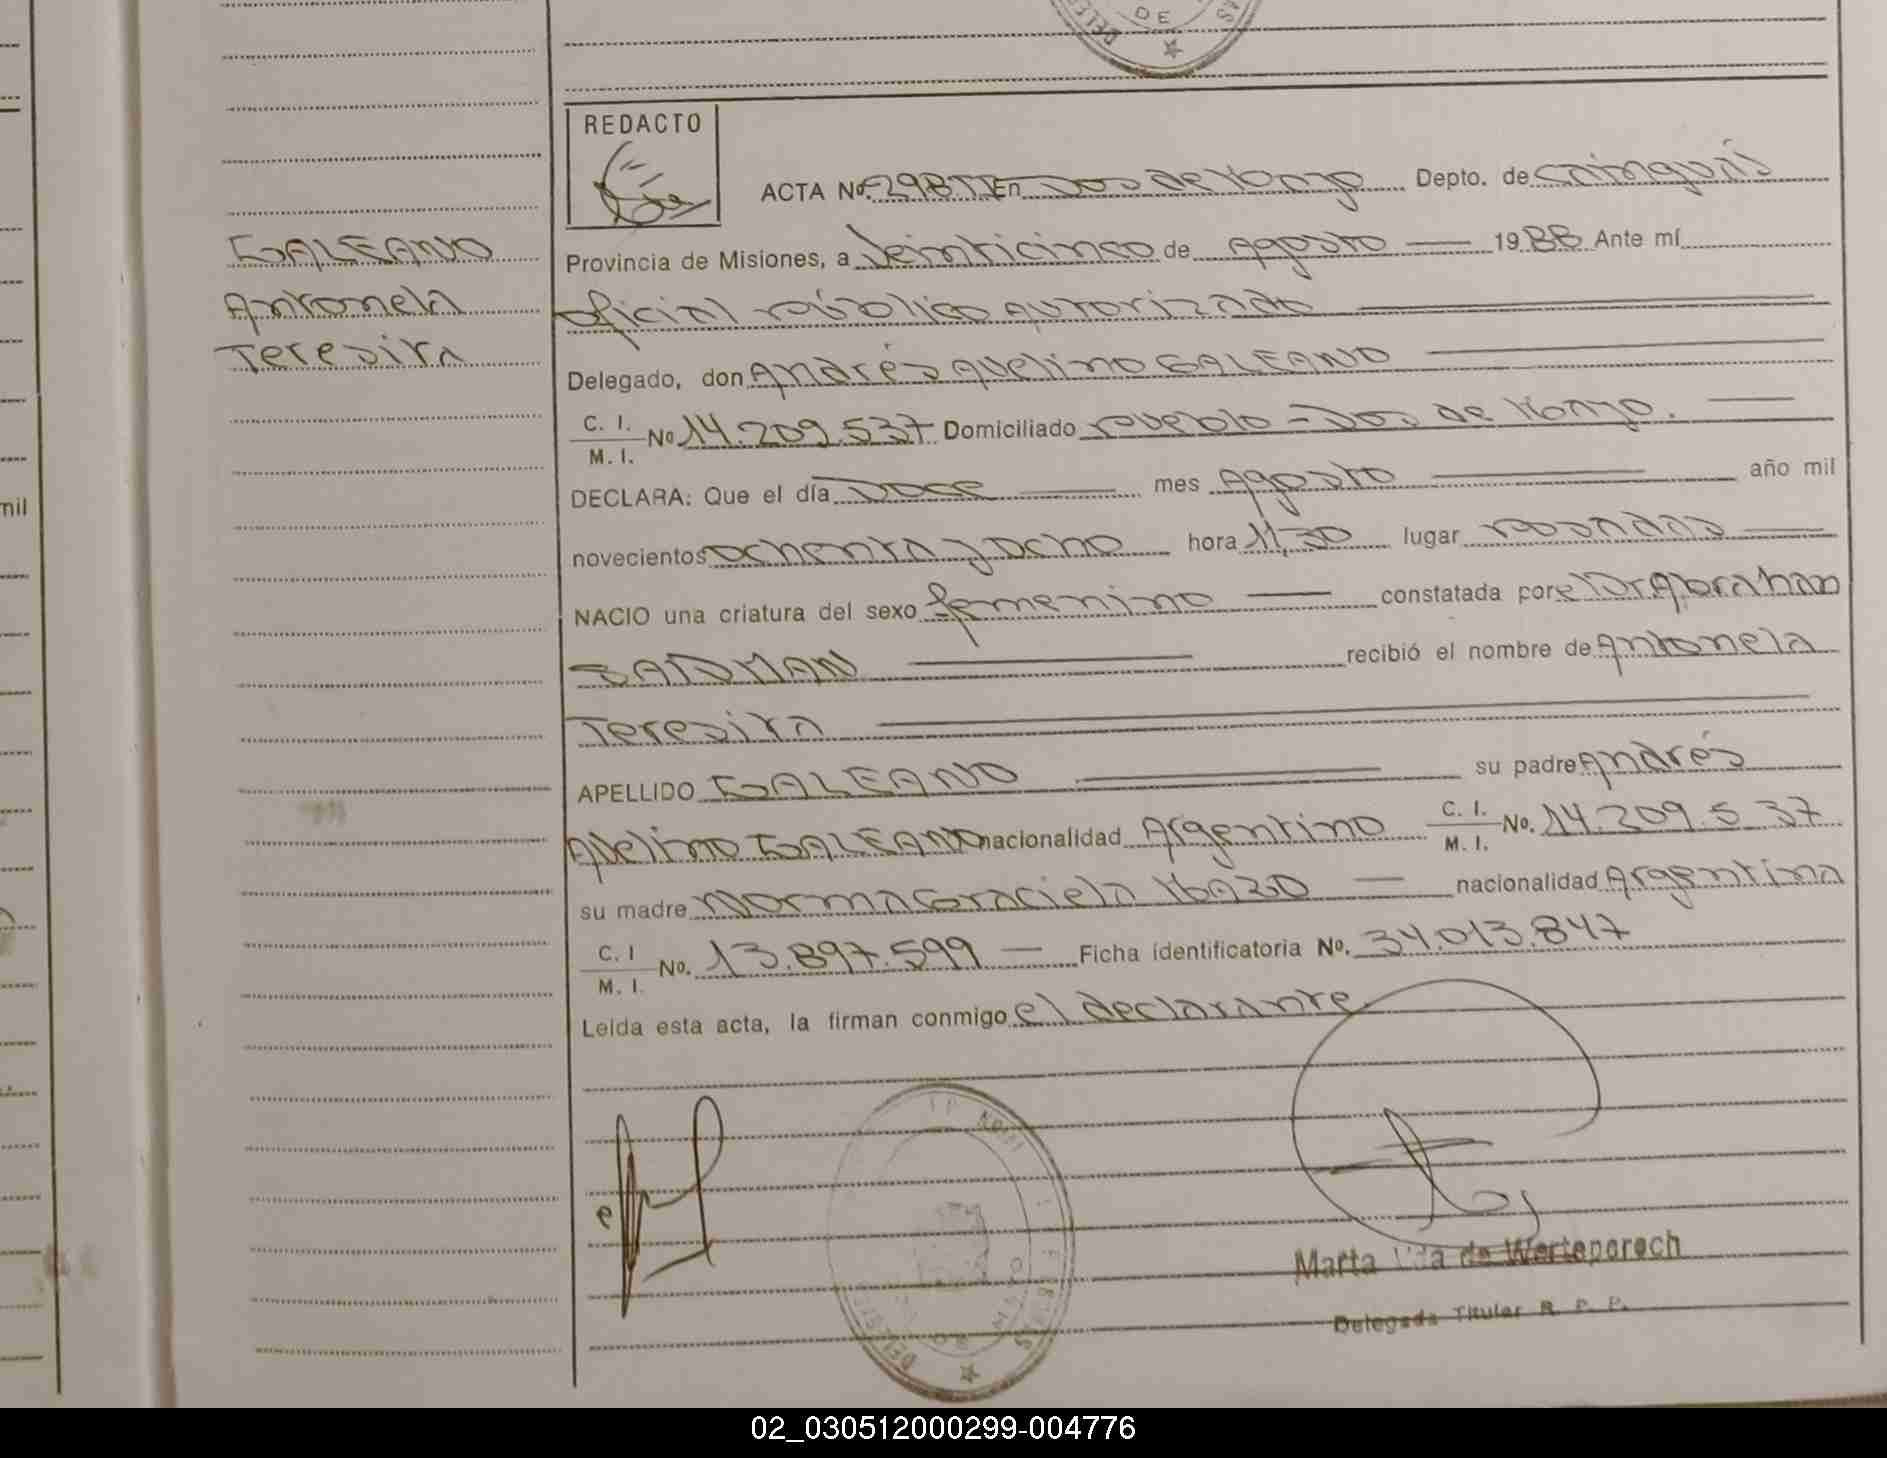 DE
REDACTO
ACTA Nº 298 TI En Dos de Mayo Depto. de Cainguás
GALEANO
Provincia de Misiones, a Veinticinco de Agosto 1988 Ante mí
Antonela
oficial público autorizado
Teresita
Delegado, don Andrés Avelino GALEANO
C. I.
M. I. No 14.209.537 Domiciliado pueblo - Dos de Mayo.
DECLARA: Que el día Doce mes Agosto año mil
mil
novecientos ochenta y ocho hora 11,30 lugar posadas
NACIO una criatura del sexo femenino constatada por el Dr. Abrahan
recibió el nombre de Antonela
Teresita
APELLIDO GALEANO su padre Andrés
Avelino GALEANO nacionalidad Argentino C. I. M. I. No. 14.209.537
su madre Norma Graciela nacionalidad Argentina
C. I M. I. No. 13.897.599 Ficha identificatoria No. 34.013.847
Leída esta acta, la firman conmigo el declarante
Marta Vda de Werteparech
Delegada Titular R. P. P.
02_030512000299-004776